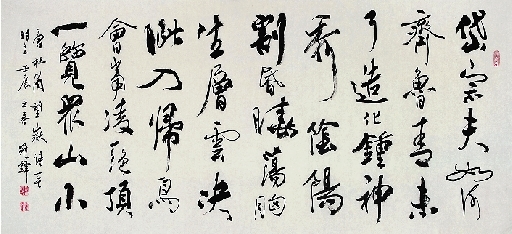 岱宗夫如何
齊魯青未
了造化鍾神
秀陰陽
割昏曉蕩胸
生層雲決
眥入歸鳥
會當凌絕頂
一覽眾山小
唐杜甫望嶽詩一首
壬辰之春